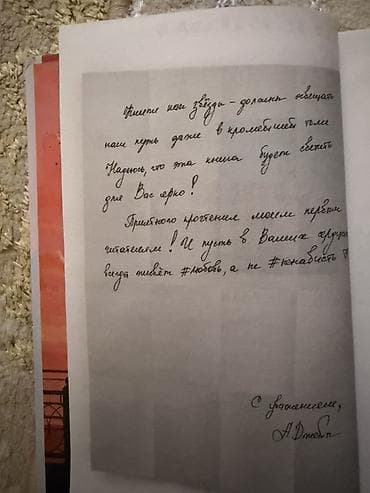 как звёзды – должны освещать
наш путь даже в кромешной тьме
Надеюсь, что эта книга будет светить
для Вас ярко!
Приятного прочтения моим первым
читателям! И пусть в Ваших сердцах
всегда живёт #любовь, а не #ненависть
С уважением,